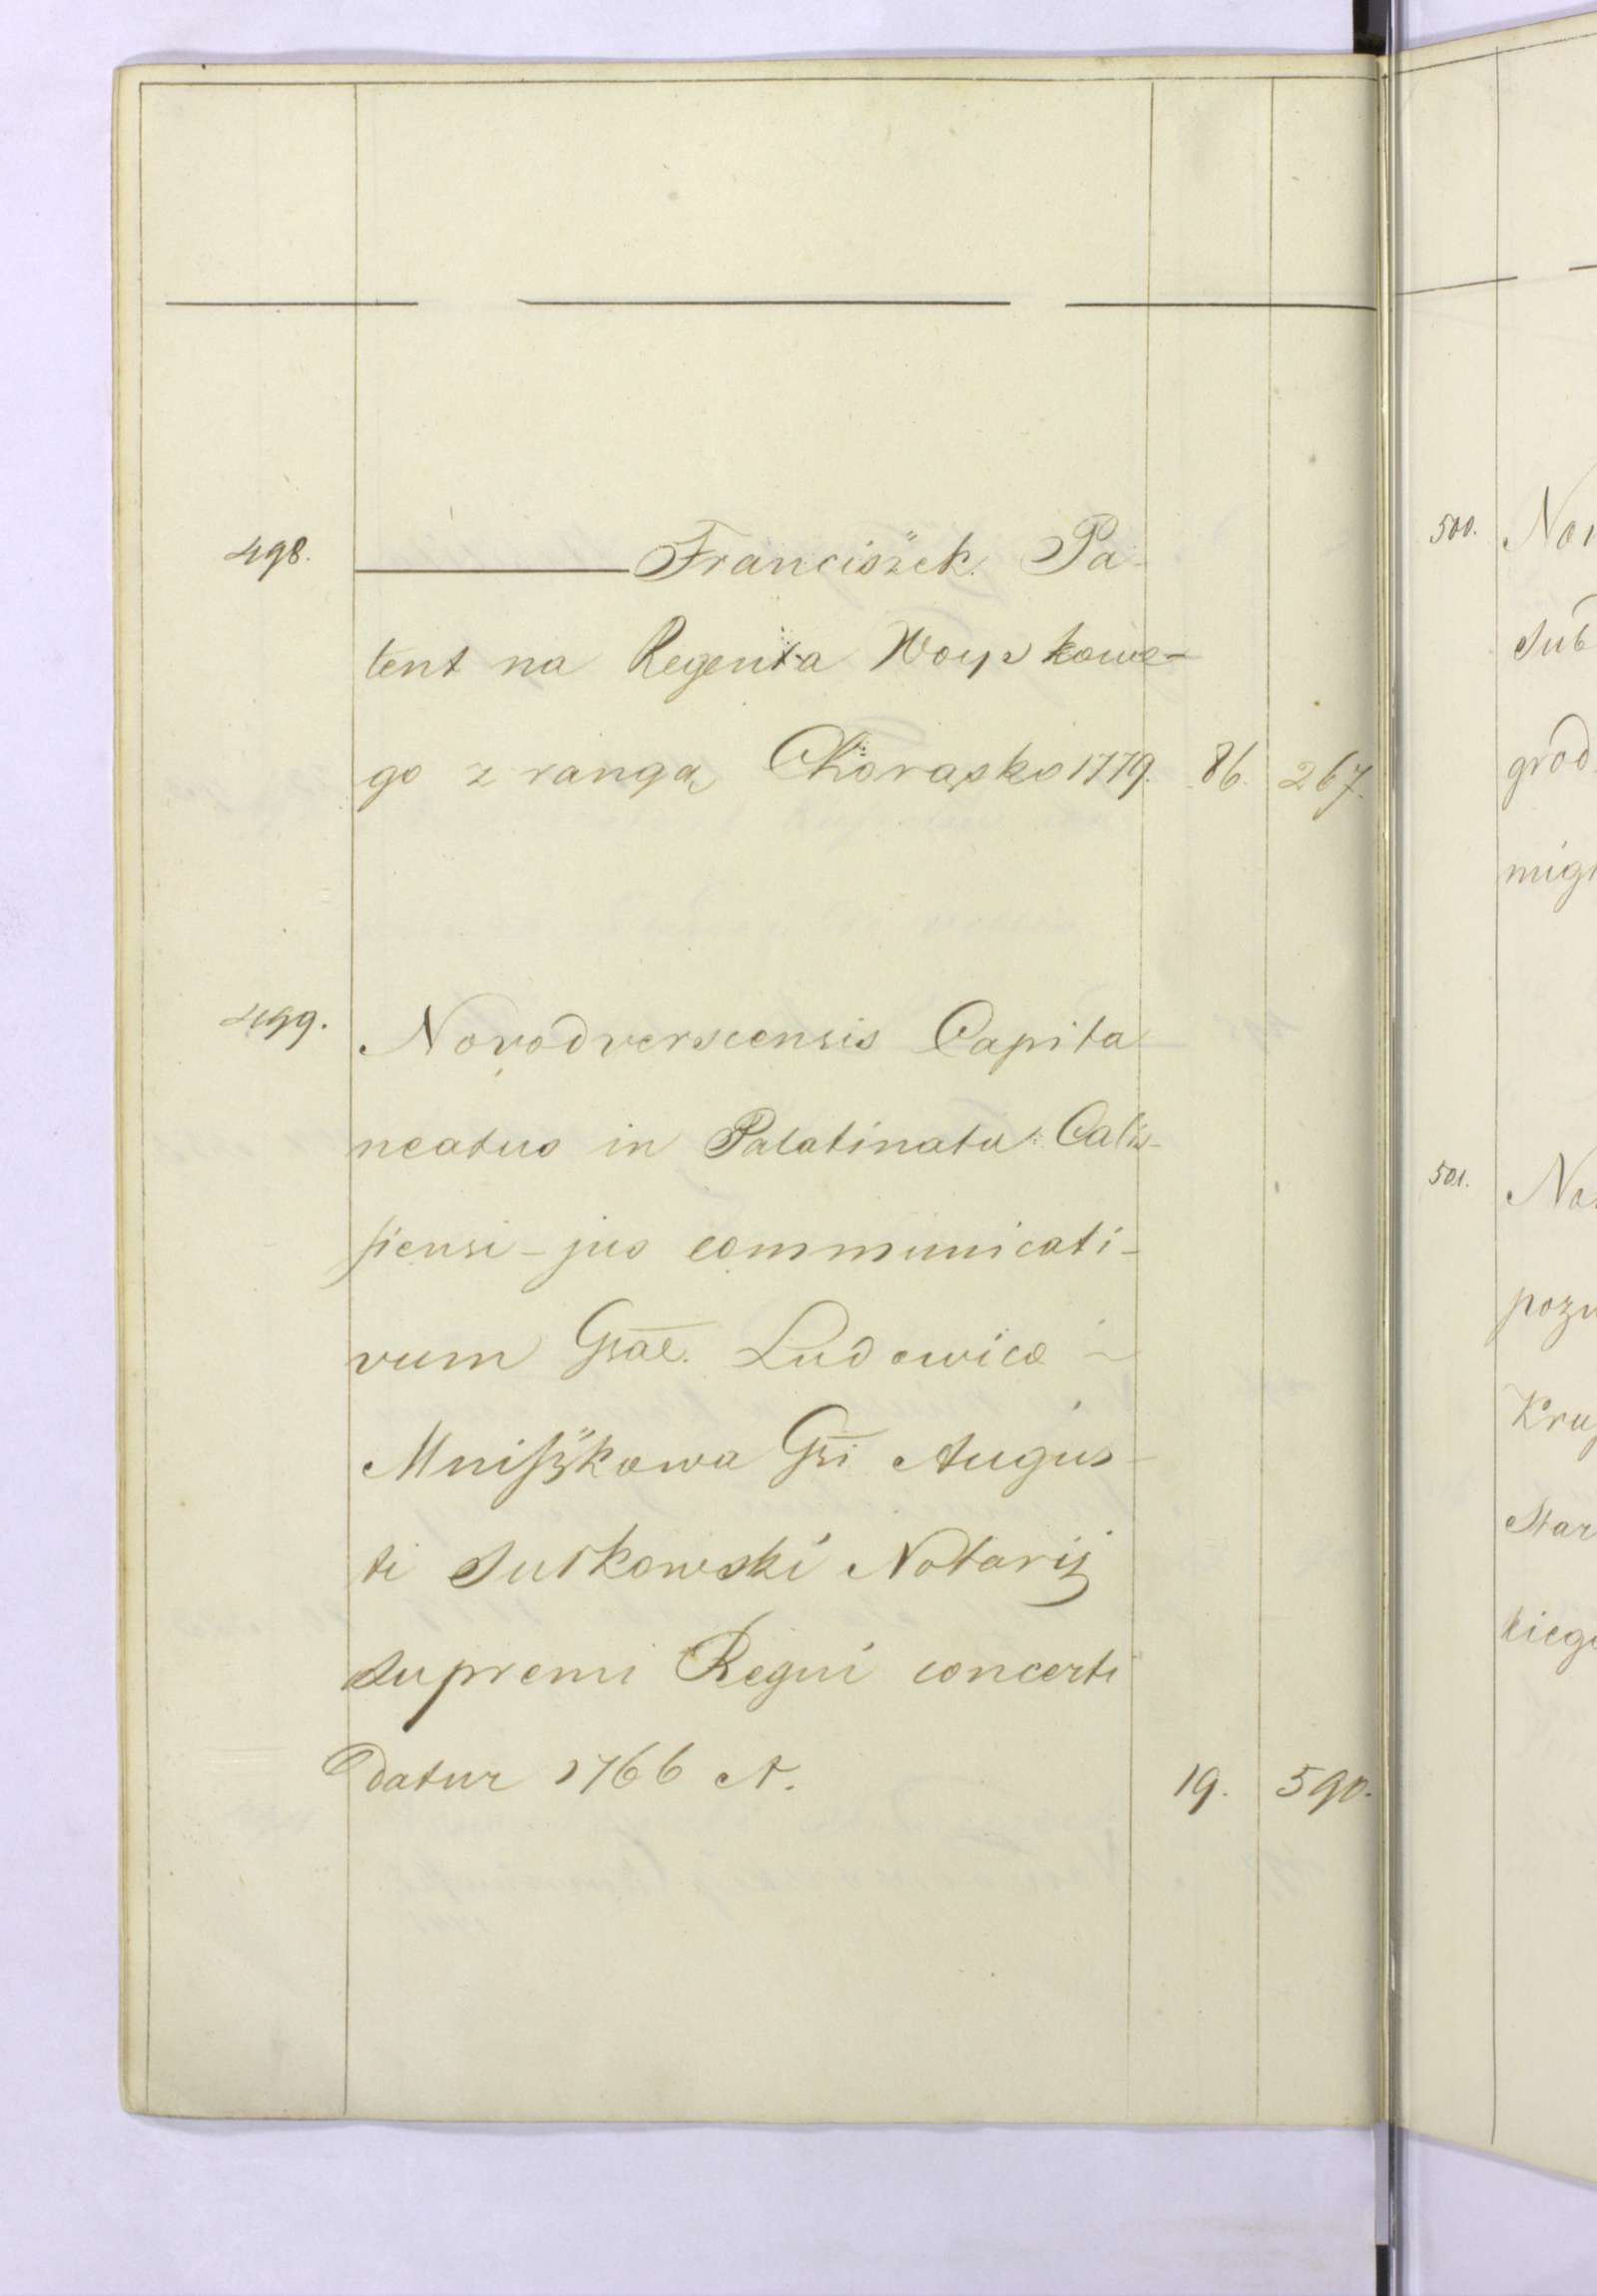 498. ——— Franciszek. Pa-
tent na Regenta Woyskowe-
go z rangą Chorąsko 1779. 86. 267.
499. Novodverscensis Capita
neatus in Palatinatu Calis-
siensi - jus communicati-
vum Gsae. Ludowica
Mniszkowa Gsi Augus-
ti Sulkowski Notarij
supremi Regni concerti
datur 1766 A. 19. 590.
500. Nov
Sub
grod
migr
501. No
pozw
Kru
Mar
kiego